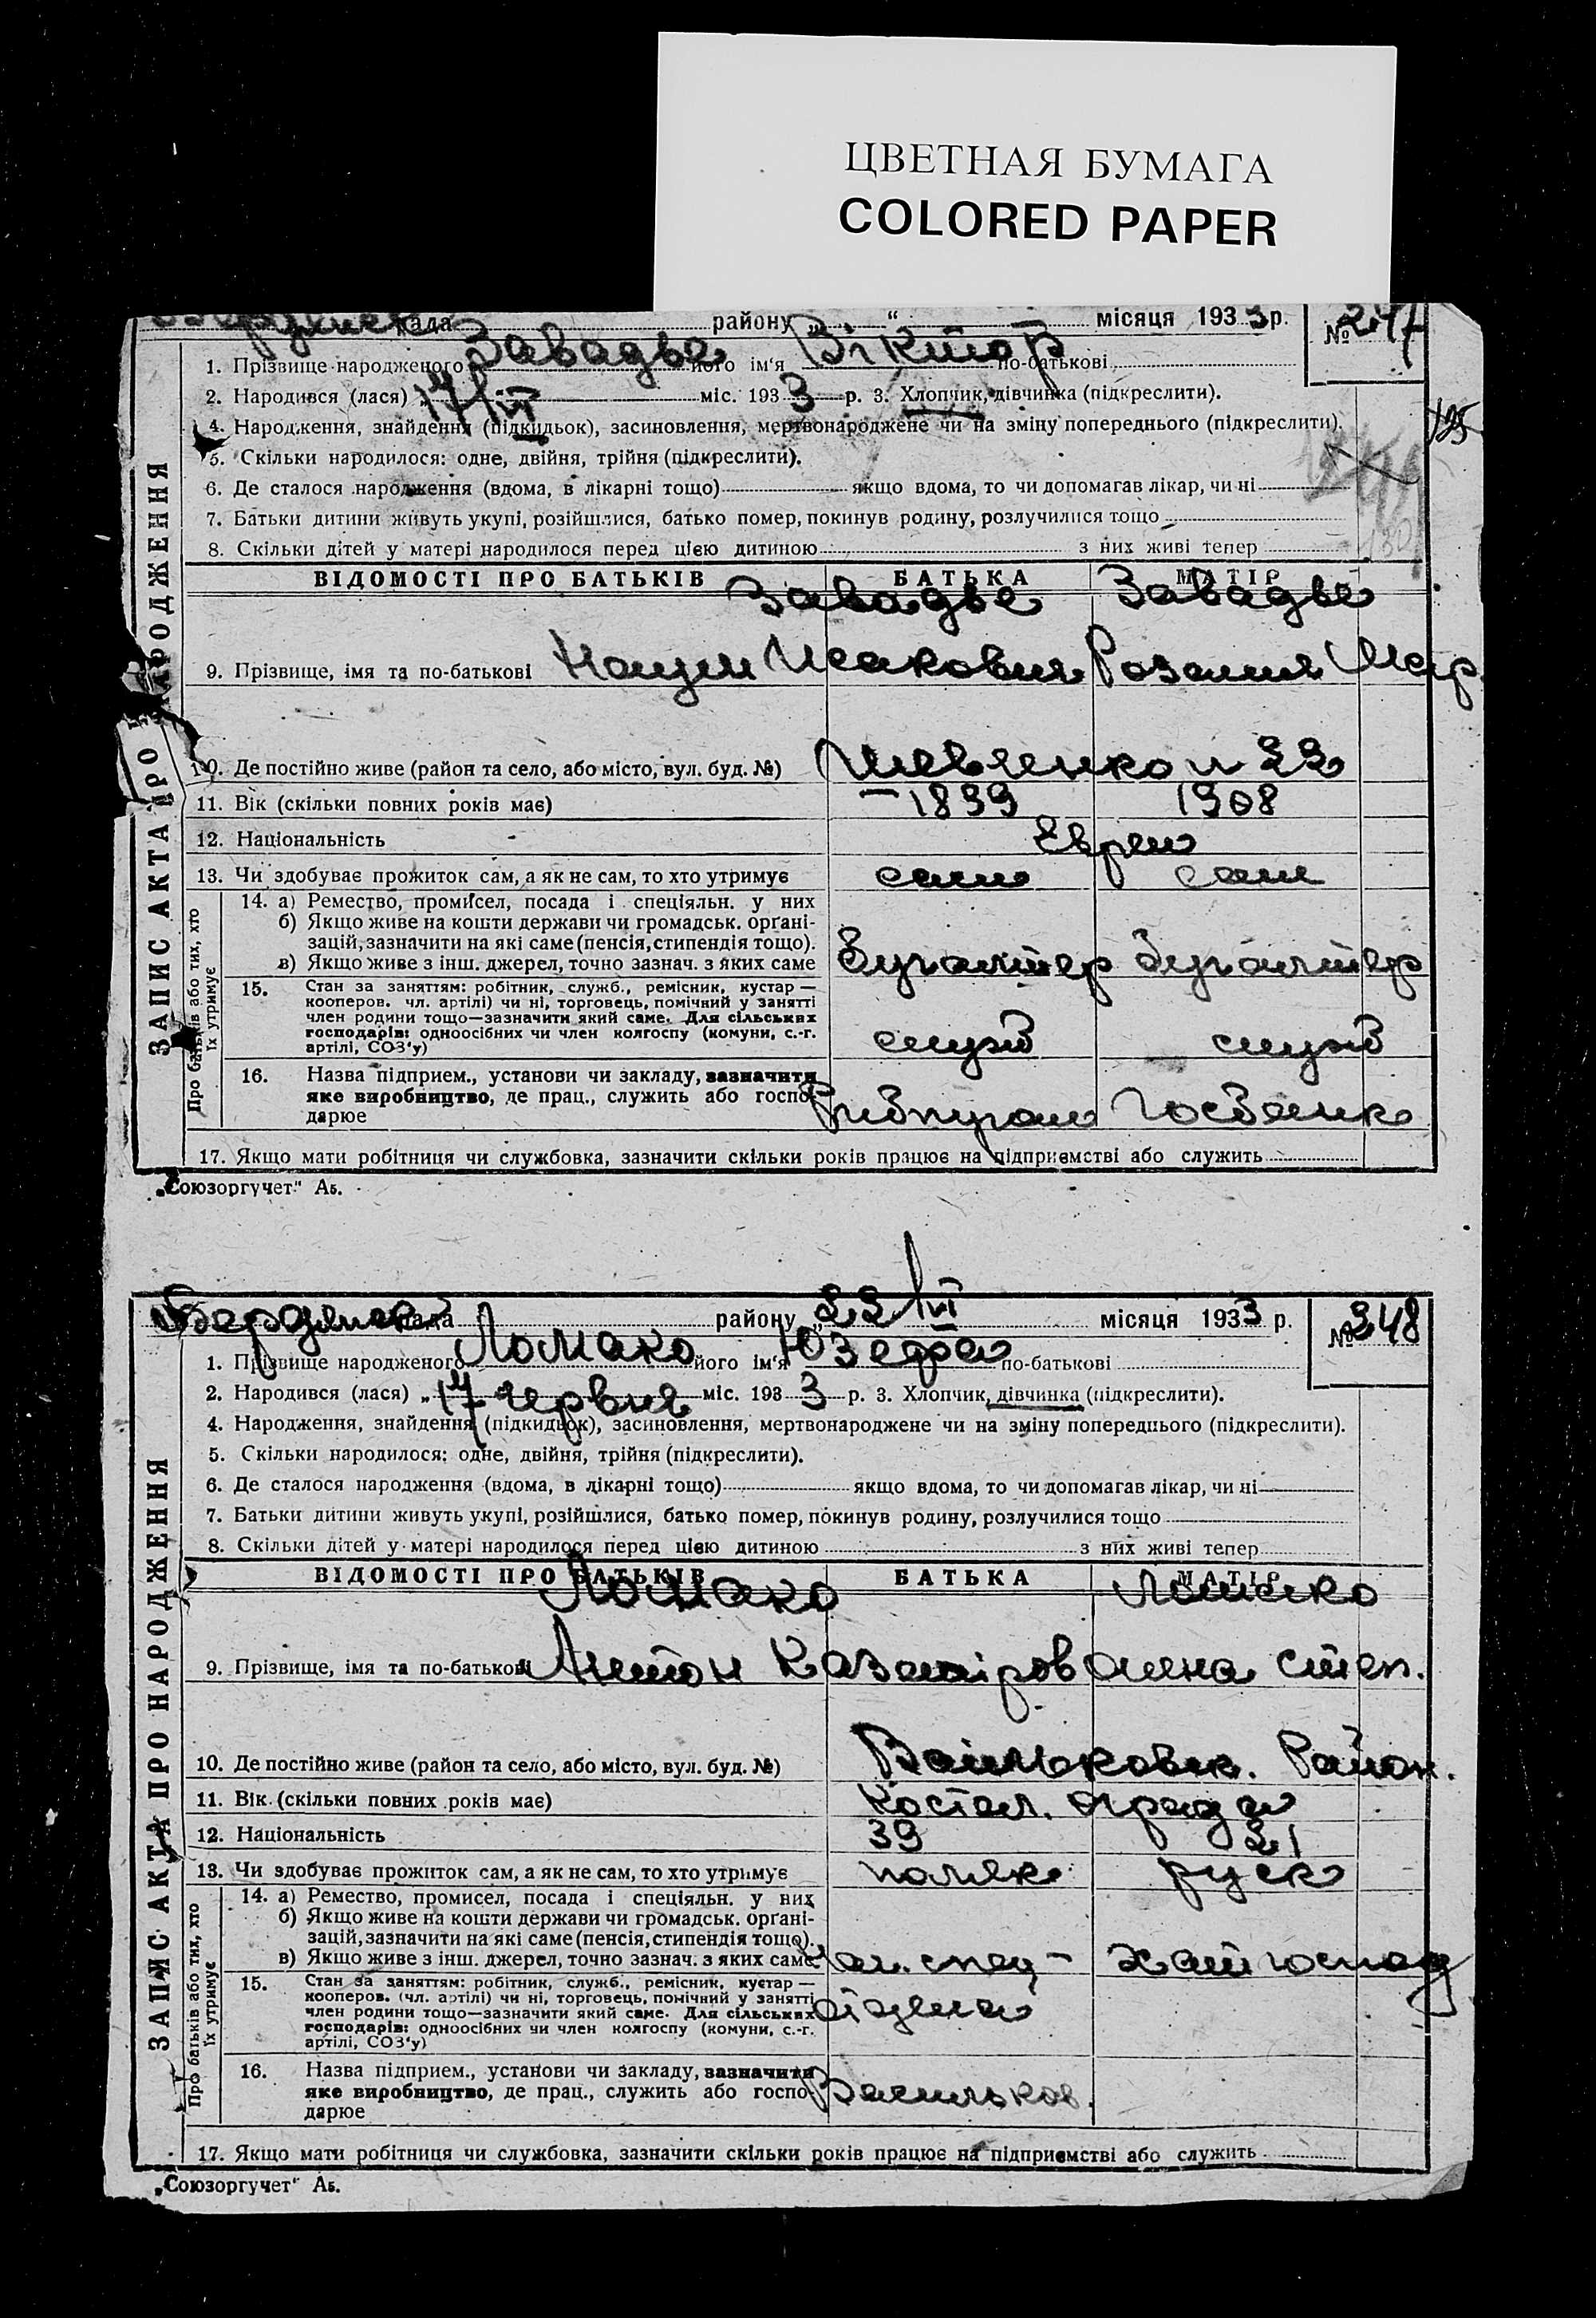 ЦВЕТНАЯ БУМАГА
COLORED PAPER
рада району „ “ місяця 1933 р. № 247
1. Прізвище народженого його ім‘я Віктор по-батькові
2. Народився (лася) „ 17/VI міс. 1933 р. 3. Хлопчик, дівчинка (підкреслити).
4. Народження, знайдення (підкидьок), засиновлення, мертвонароджене чи на зміну попереднього (підкреслити).
195
5. Скільки народилося: одне, двійня, трійня (підкреслити).
6. Де сталося народження (вдома, в лікарні тощо) якщо вдома, то чи допомагав лікар, чи ні
7. Батьки дитини живуть укупі, розійшлися, батько помер, покинув родину, розлучилися тощо
8. Скільки дітей у матері народилося перед цією дитиною з них живі тепер
ВІДОМОСТІ ПРО БАТЬКІВ БАТЬКА МАТІР
9. Прізвище, імя та по-батькові
10. Де постійно живе (район та село, або місто, вул. буд. №) Шевченко
11. Вік (скільки повних років має) 1899 1908
12. Національність Евреи
13. Чи здобуває прожиток сам, а як не сам, то хто утримує сам сам
14. а) Ремество, промисел, посада і спеціяльн. у них
б) Якщо живе на кошти держави чи громадськ. органі-
зацій, зазначити на які саме (пенсія, стипендія тощо).
в) Якщо живе з інш. джерел, точно зазнач. з яких саме Бугалтер Бугалтер
15. Стан за заняттям: робітник, служб., ремісник, кустар —
кооперов. чл. артілі) чи ні, торговець, помічний у занятті
член родини тощо—зазначити який саме. Для сільських
господарів: одноосібних чи член колгоспу (комуни, с.-г.
артілі, СОЗ‘у) служб служб
16. Назва підприєм., установи чи закладу, зазначити
яке виробництво, де прац., служить або госпо-
дарює Госбанк
17. Якщо мати робітниця чи службовка, зазначити скільки років працює на підприємстві або служить
ЗАПИС АКТА ПРО НАРОДЖЕННЯ
Про батьків або тих, хто
їх утримує
„Союзоргучет“ Аб.
Бердянськ рада району „22/VI місяця 1933 р. № 248
1. Прізвище народженого Ломако його ім‘я Юзефа по-батькові
2. Народився (лася) „ 17 червня міс. 1933 р. 3. Хлопчик, дівчинка (підкреслити).
4. Народження, знайдення (підкидьок), засиновлення, мертвонароджене чи на зміну попереднього (підкреслити).
5. Скільки народилося: одне, двійня, трійня (підкреслити).
6. Де сталося народження (вдома, в лікарні тощо) якщо вдома, то чи допомагав лікар, чи ні
7. Батьки дитини живуть укупі, розійшлися, батько помер, покинув родину, розлучилися тощо
8. Скільки дітей у матері народилося перед цією дитиною з них живі тепер
ВІДОМОСТІ ПРО БАТЬКІВ БАТЬКА МАТІР
Ломако Ломако
9. Прізвище, імя та по-батькові Антон Казміров степ.
10. Де постійно живе (район та село, або місто, вул. буд. №) Район.
11. Вік (скільки повних років має)
12. Національність 39 21
13. Чи здобуває прожиток сам, а як не сам, то хто утримує поляк руск
14. а) Ремество, промисел, посада і спеціяльн. у них
б) Якщо живе на кошти держави чи громадськ. органі-
зацій, зазначити на які саме (пенсія, стипендія тощо).
в) Якщо живе з інш. джерел, точно зазнач. з яких саме хатгоспод
15. Стан за заняттям: робітник, служб., ремісник, кустар —
кооперов. (чл. артілі) чи ні, торговець, помічний у занятті
член родини тощо—зазначити який саме. Для сільських
господарів: одноосібних чи член колгоспу (комуни, с.-г.
артілі, СОЗ‘у)
16. Назва підприєм., установи чи закладу, зазначити
яке виробництво, де прац., служить або госпо-
дарює Васильков.
17. Якщо мати робітниця чи службовка, зазначити скільки років працює на підприємстві або служить
ЗАПИС АКТА ПРО НАРОДЖЕННЯ
Про батьків або тих, хто
їх утримує
„Союзоргучет“ Аб.